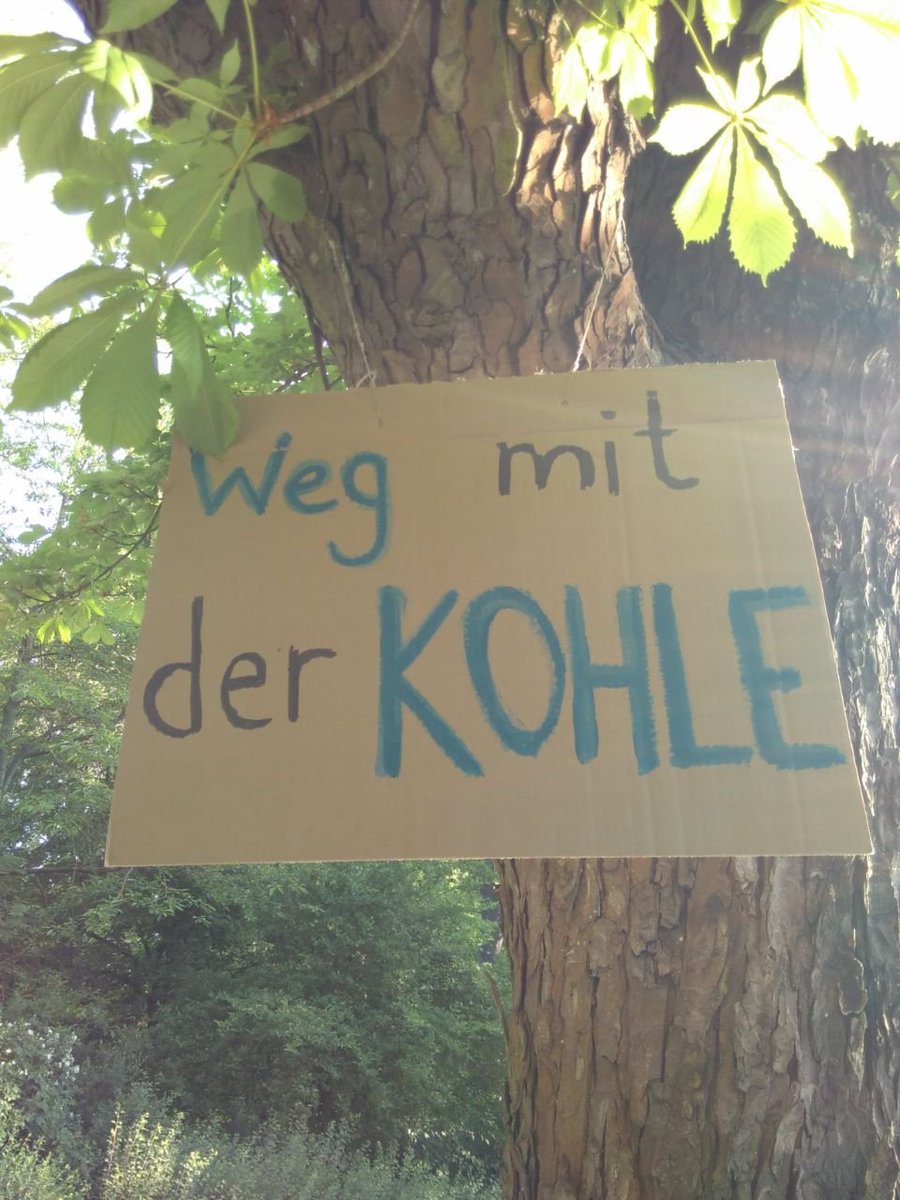 Weg mit
der KOHLE